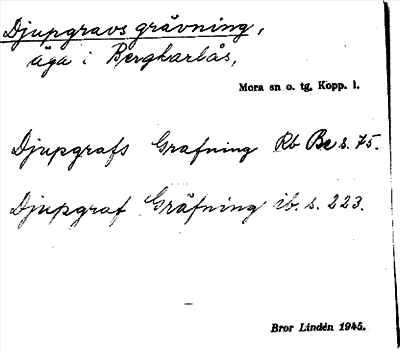 Djupgravs grävning,
äga i Bergkarlås,
Mora sn o. tg. Kopp. l.
Djupgrafs Gräfning Rb Be s. 75.
Djupgraf Gräfning ib. s. 223.
Bror Lindén 1945.